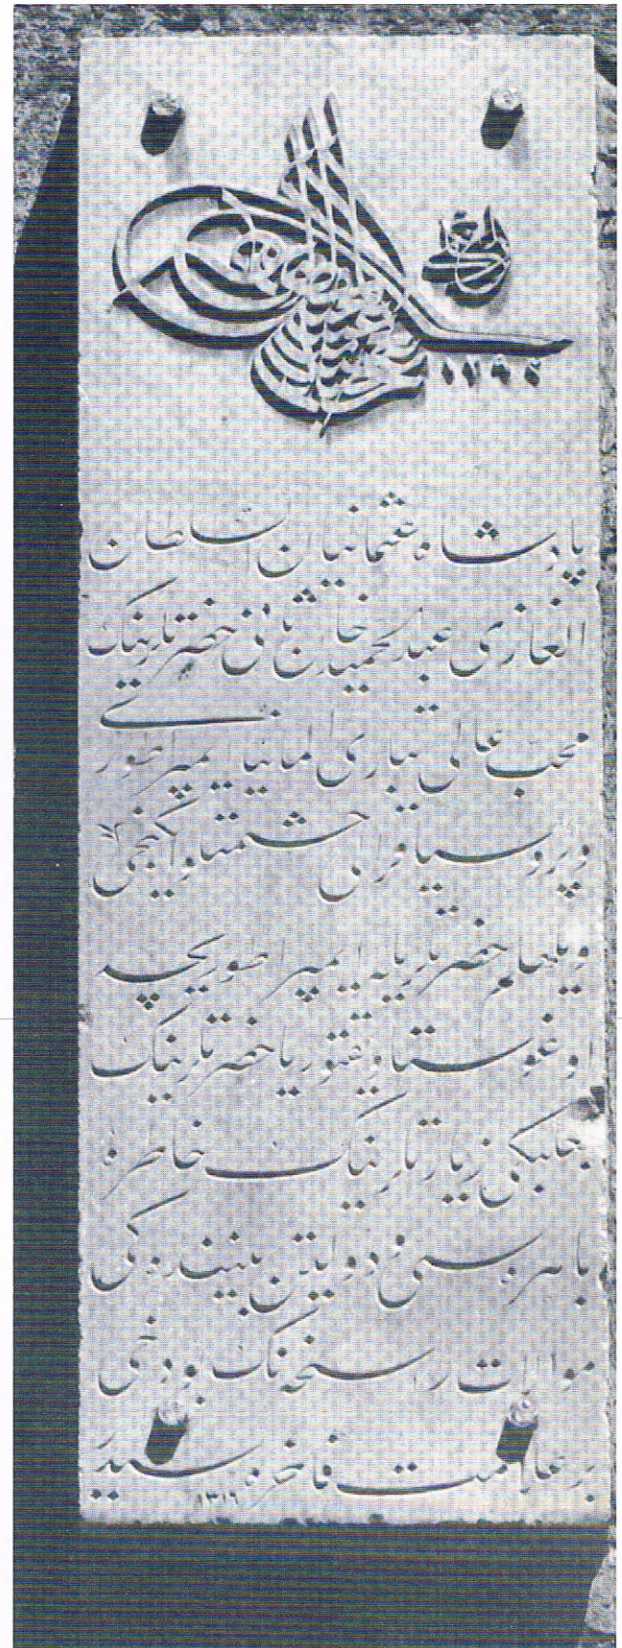 الغازی
۱۲۹۳
پادشاه عثمانیان السلطان
الغازی عبدالحمید خان ثانی حضرتلرینك
محب عالی تباری المانیا ایمپراطوری
و پروسیا قرالی حشمتلو ایکنجی
ویلهلم حضرتلریله ایمپراطوریچه
اوغوستا ویقتوریا حضرتلرینك
بعلبكی زیارتلرینك خاطره
باهره سی و دولتین بیننده كی
موالات راسخه نك بودخی
بر علامت فاخره سیدر
۱۳۱۶